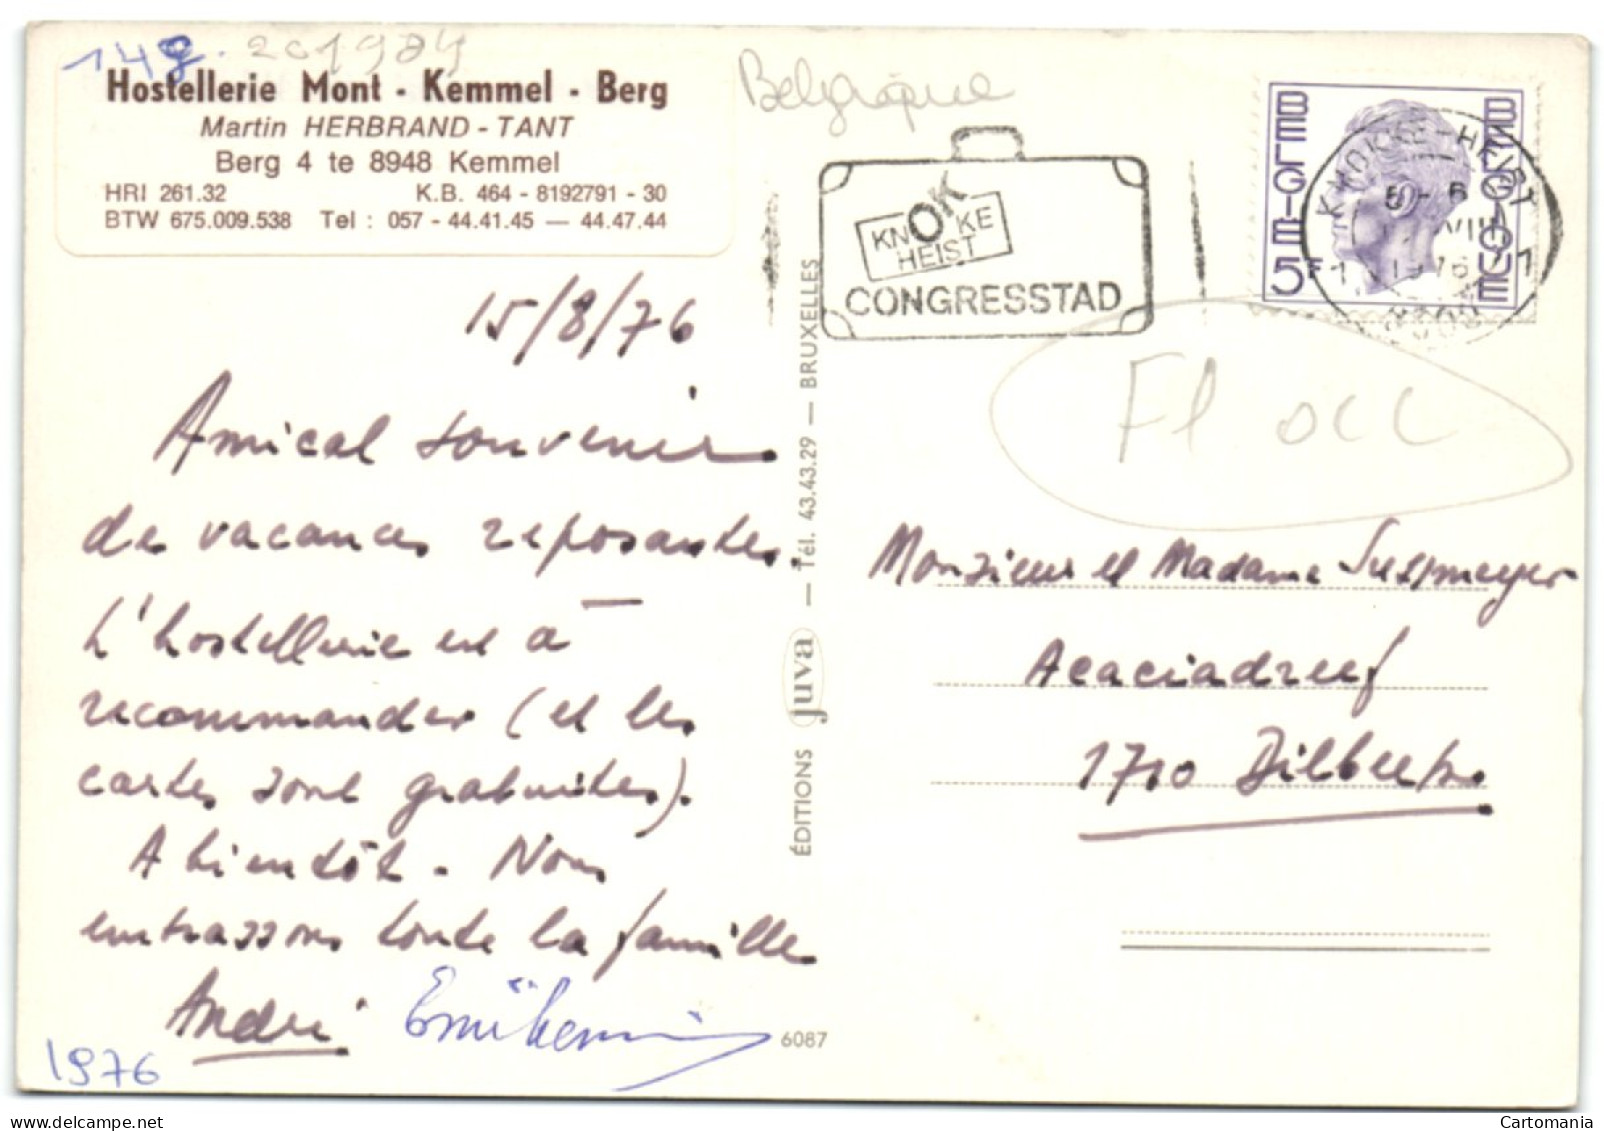 149. 201984
Hostellerie Mont - Kemmel - Berg
Martin HERBRAND - TANT
Berg 4 te 8948 Kemmel
HRI 261.32 K.B. 464 - 8192791 - 30
BTW 675.009.538 Tel : 057 - 44.41.45 — 44.47.44
15/8/76
Amical souvenir
de vacances reposantes.
L'hostellerie est à
recommander (et les
cartes sont gratuites).
A bientôt - Nous
embrassons toute la famille
André
1976
ÉDITIONS juva — Tél. 43.43.29 — BRUXELLES
6087
Belgique
KNOKKE
HEIST
CONGRESSTAD
BELGIE 5F BELGIQUE
KNOKKE-HEIST
1976
Fl occ
Monsieur et Madame Suspmeyer
Acaciadreef
1710 Dilbeek
Cartomania